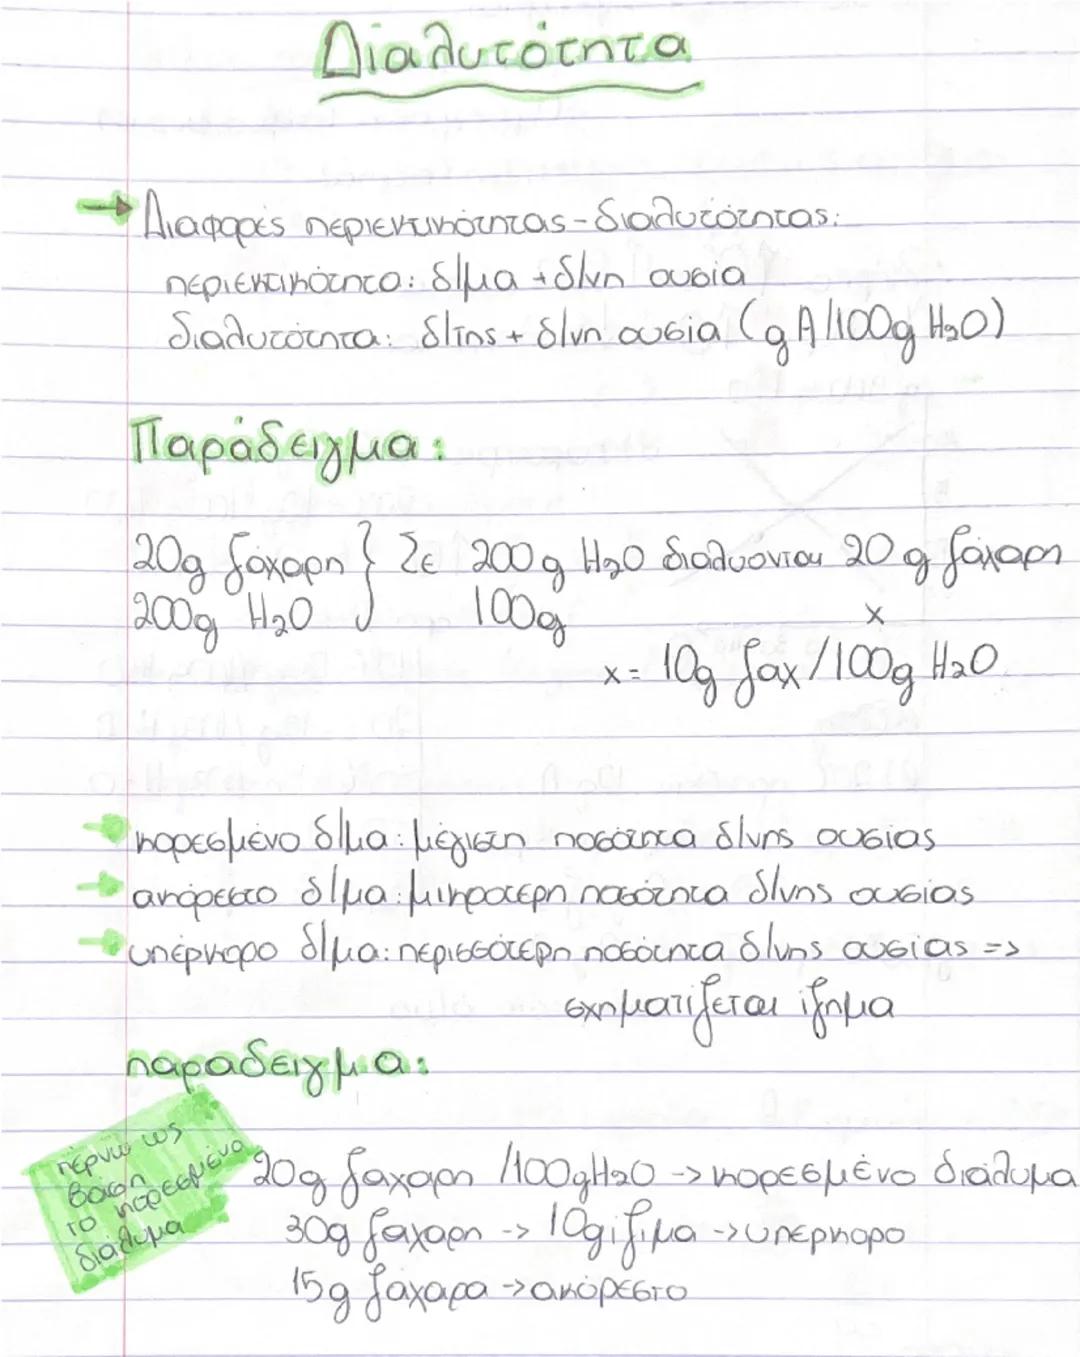 Διαλυτότητα
→ Διαφορές περιεκτικότητας - διαλυτότητας:
περιεκτικότητα: δ/μα + δ/νη ουσία
διαλυτότητα: δ/της + δ/νη ουσία (g A/100g H₂O)
Παράδειγμα:
20g ζάχαρη } Σε 200g H₂O διαλύονται 20 g ζάχαρη
200g H₂O 100g x
x = 10g ζαχ/100g H₂O
→ κορεσμένο δ/μα: μέγιστη ποσότητα δ/νης ουσίας
→ ακόρεστο δ/μα: μικρότερη ποσότητα δ/νης ουσίας
→ υπέρκορο δ/μα: περισσότερη ποσότητα δ/νης ουσίας =>
σχηματίζεται ίζημα
παραδειγμα:
πέρνω ως
βάση
το κορεσμένο
διάλυμα
20g ζαχαρη /100gH₂O -> κορεσμένο διάλυμα
30g ζαχαρη -> 10g ίζιμα -> υπερκορο
15g ζάχαρα -> ακόρεστο